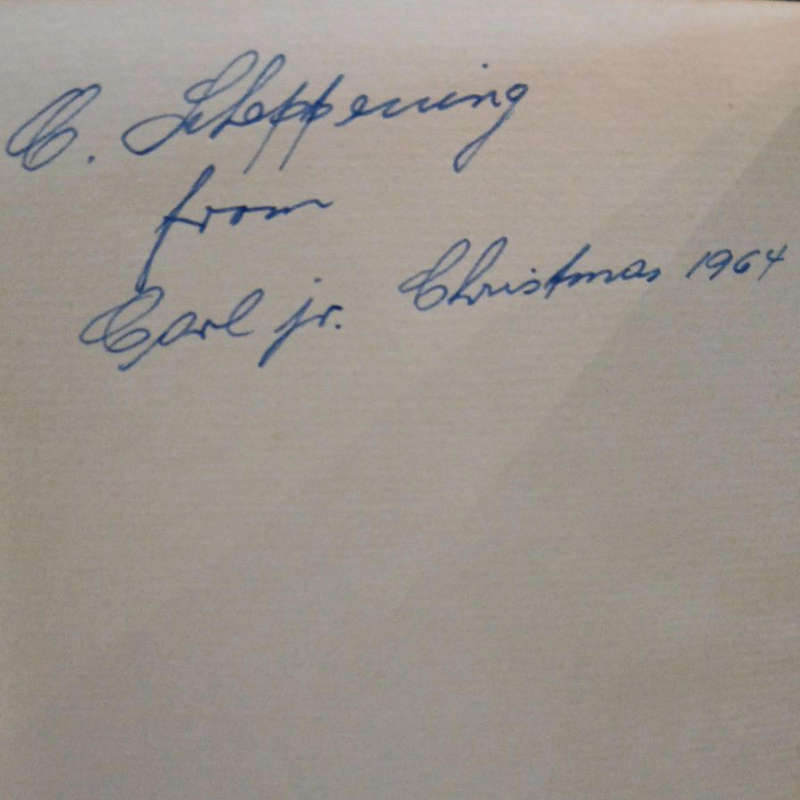 C. Scheppening
from
Carl jr. Christmas 1964